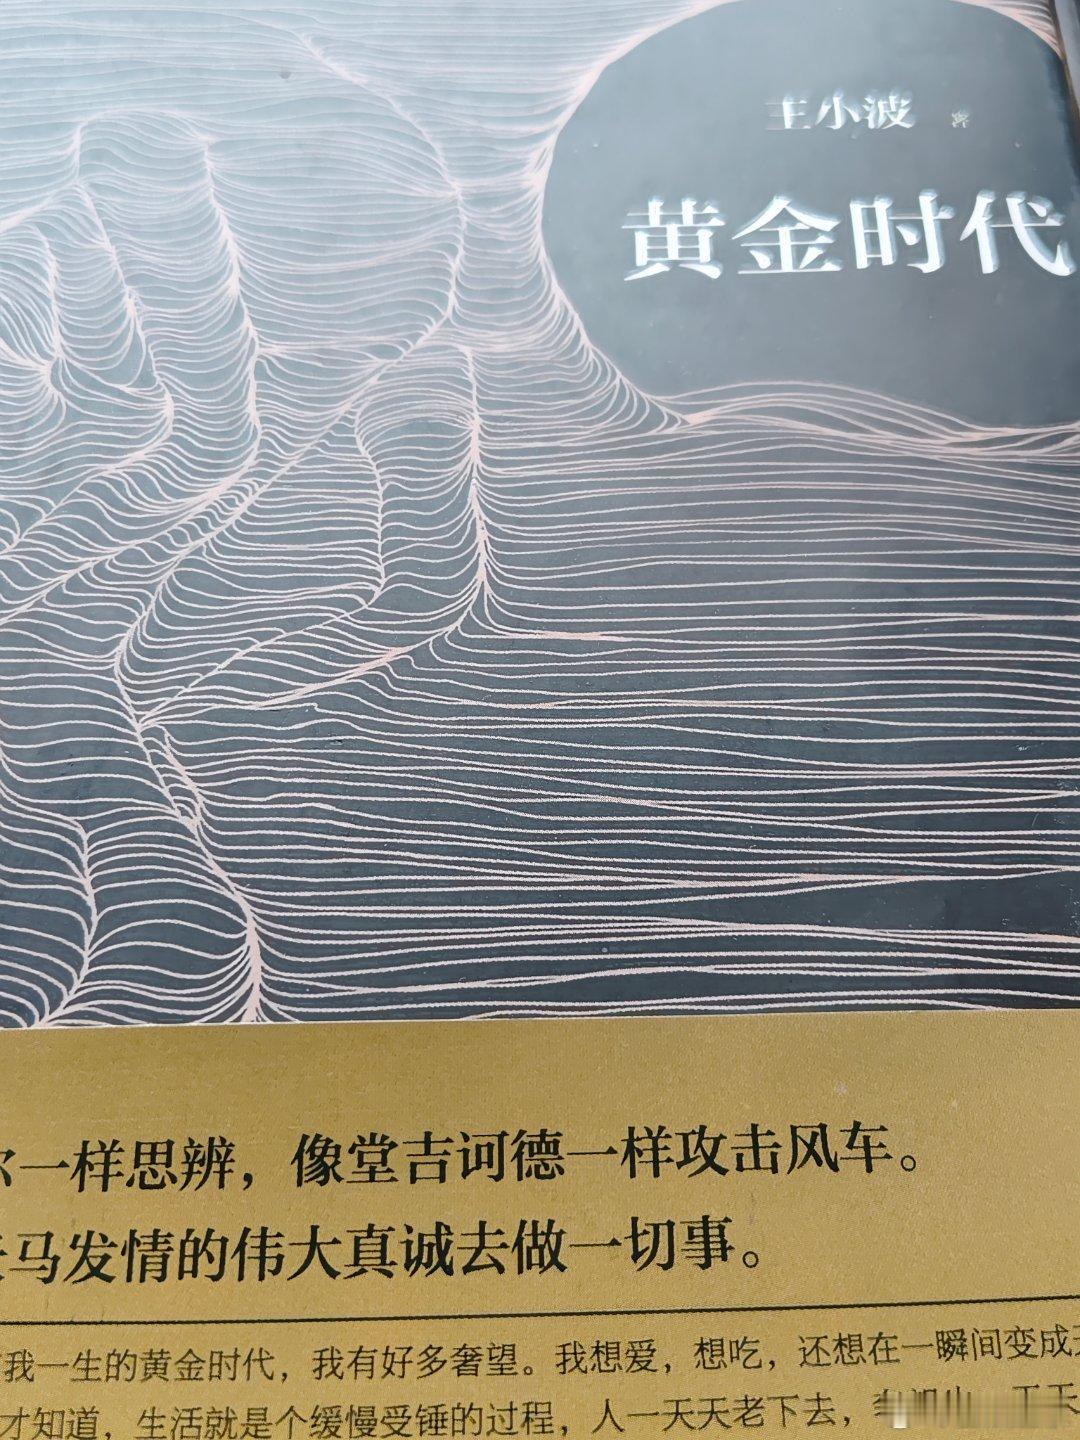 王小波 著
黄金时代
一样思辨，像堂吉诃德一样攻击风车。
马发情的伟大真诚去做一切事。
我一生的黄金时代，我有好多奢望。我想爱，想吃，还想在一瞬间变成
才知道，生活就是个缓慢受锤的过程，人一天天老下去，奢望